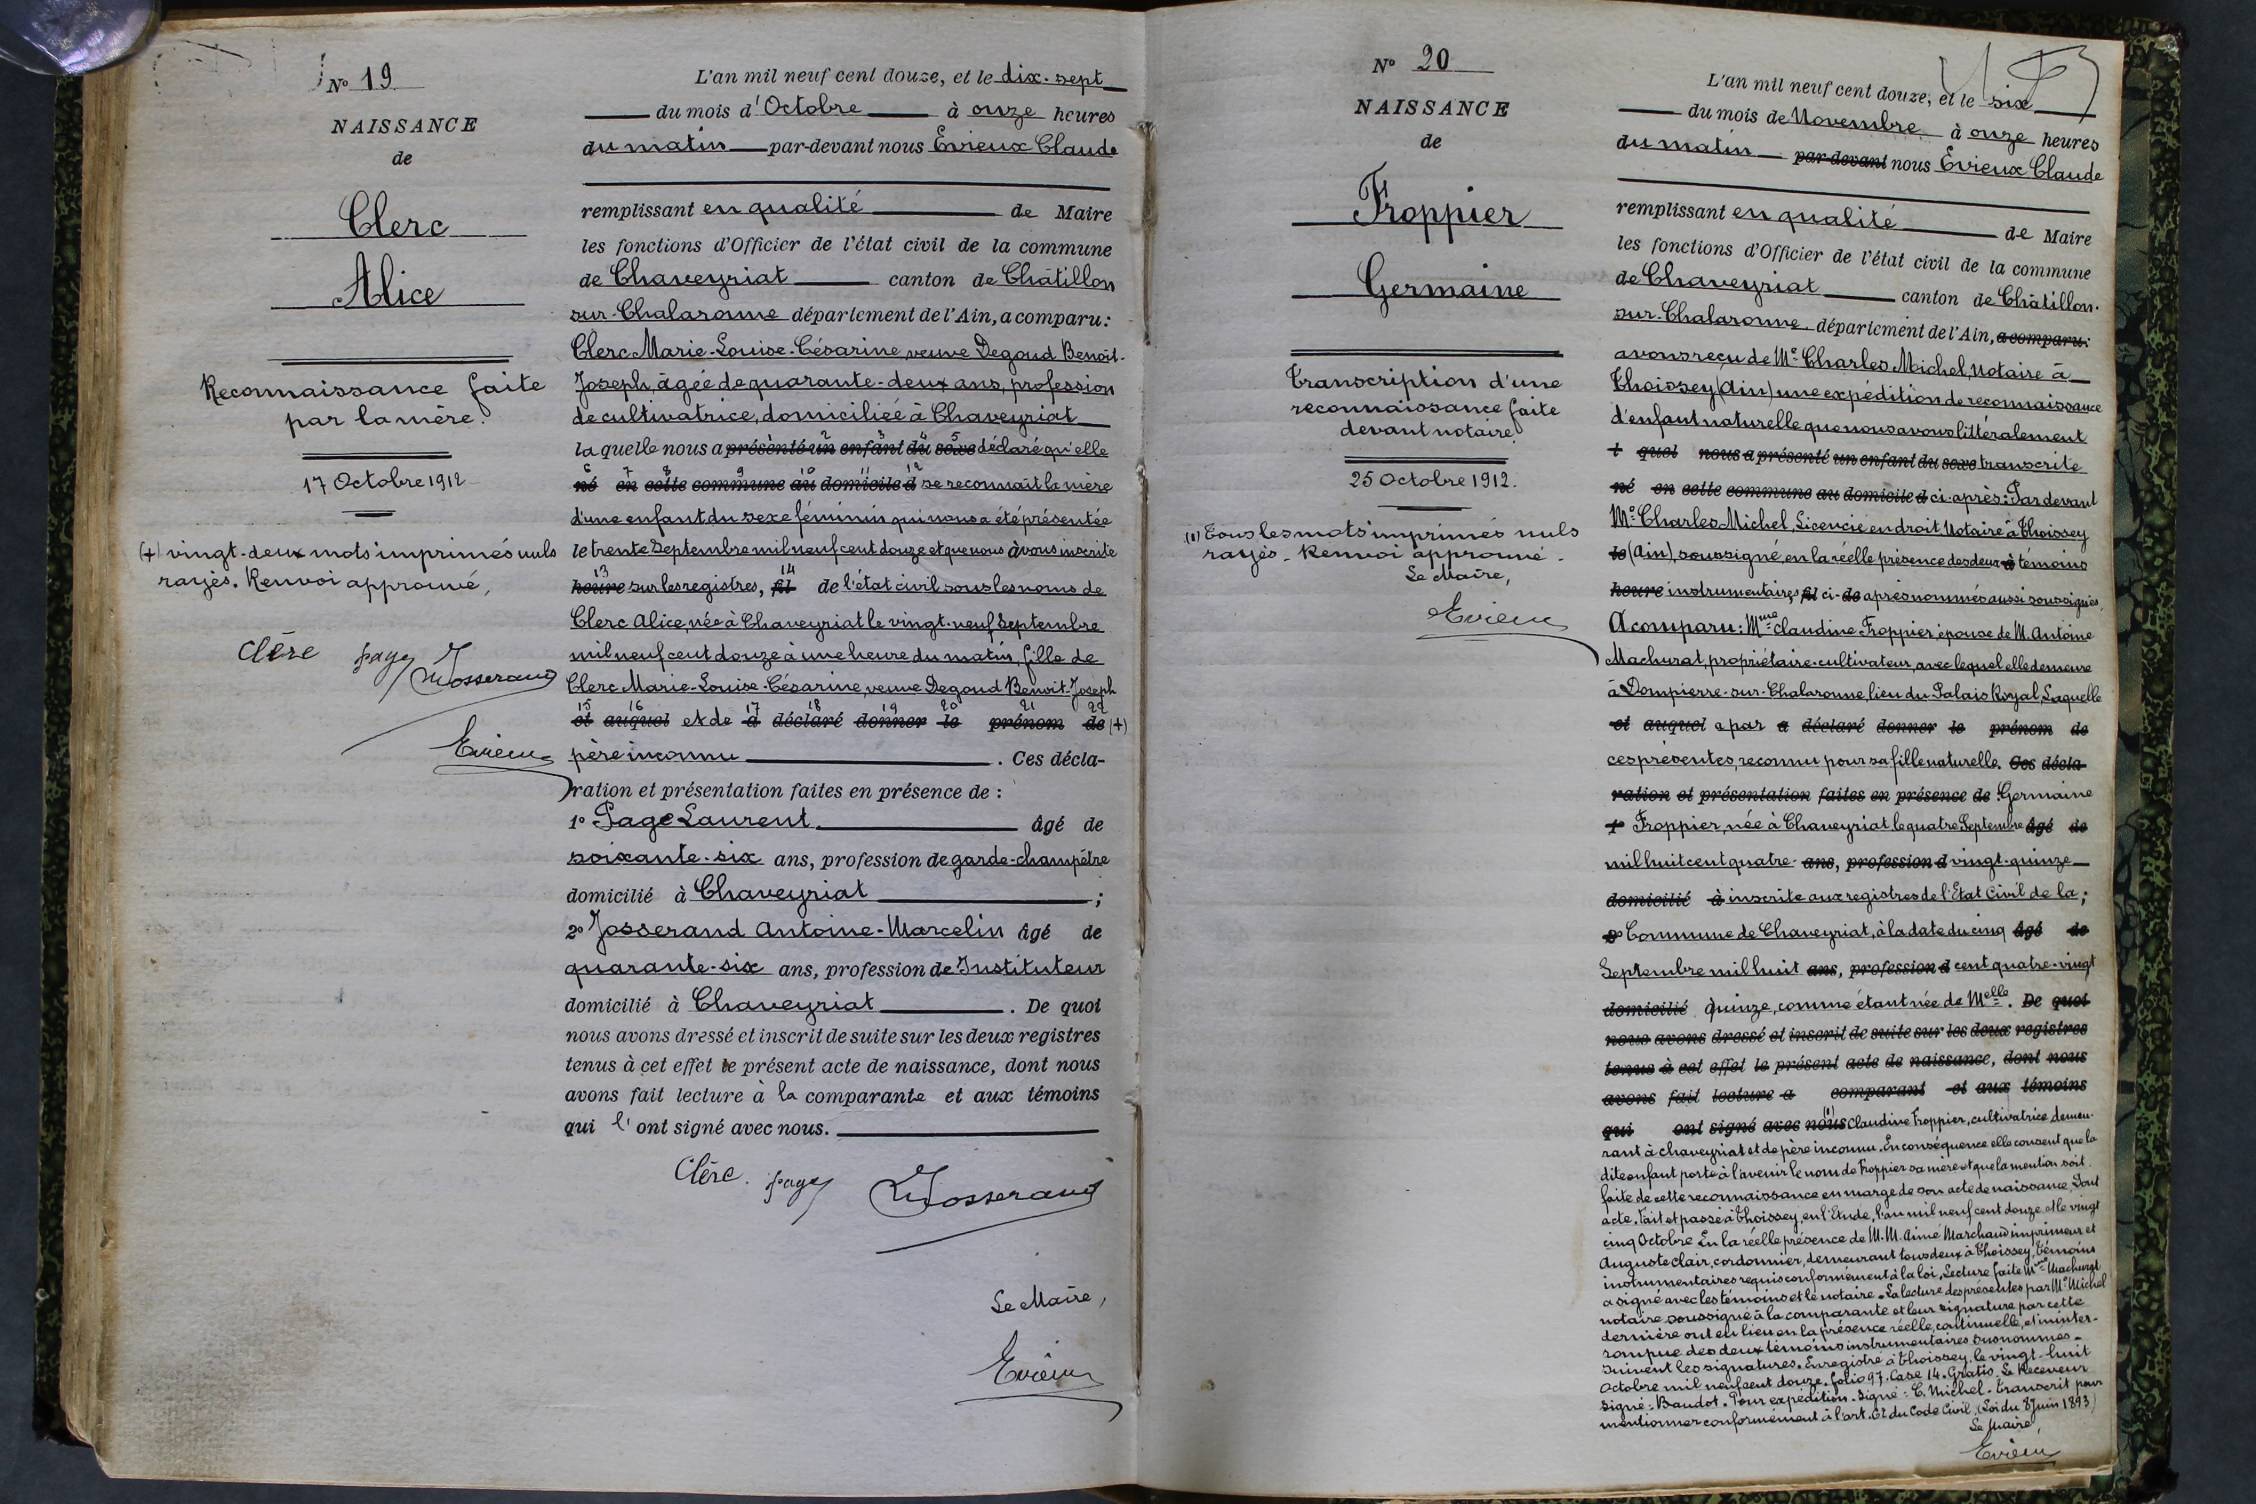 N° 19
NAISSANCE
de
Clerc
Alice
Reconnaissance faite
par la mère.
17 Octobre 1912
(+) vingt-deux mots imprimés nuls
rayés. Renvoi approuvé,
Clerc Page Josserand
Evieux
L'an mil neuf cent douze, et le dix-sept
du mois d'Octobre à onze heures
du matin par-devant nous Evieux Claude
remplissant en qualité de Maire
les fonctions d'Officier de l'état civil de la commune
de Chaveyriat canton de Châtillon
sur-Chalaronne département de l'Ain, a comparu:
Clerc Marie-Louise-Césarine, veuve Degoud Benoît-
Joseph, âgée de quarante-deux ans, profession
de cultivatrice, domiciliée à Chaveyriat
laquelle nous a présenté un enfant du sexe déclaré qu'elle
né en cette commune au domicile d se reconnaît la mère
d'une enfant du sexe féminin qui nous a été présentée
le trente Septembre mil neuf cent douze et que nous avons inscrite
heure sur les registres, fil de l'état civil sous les noms de
Clerc Alice, née à Chaveyriat le vingt-neuf Septembre
mil neuf cent douze à une heure du matin, fille de
Clerc Marie-Louise-Césarine, veuve Degoud Benoît-Joseph
et auquel et de a déclaré donner le prénom de (+)
père inconnu . Ces décla-
ration et présentation faites en présence de :
1° Page Laurent âgé de
soixante-six ans, profession de garde-champêtre
domicilié à Chaveyriat ;
2° Josserand Antoine-Marcelin âgé de
quarante-six ans, profession de Instituteur
domicilié à Chaveyriat . De quoi
nous avons dressé et inscrit de suite sur les deux registres
tenus à cet effet le présent acte de naissance, dont nous
avons fait lecture à la comparante et aux témoins
qui l'ont signé avec nous.
Clerc. Page Josserand
Le Maire,
Evieux
N° 20
NAISSANCE
de
Froppier
Germaine
Transcription d'une
reconnaissance faite
devant notaire.
25 Octobre 1912.
(1) Tous les mots imprimés nuls
rayés. Renvoi approuvé.
Le Maire,
Evieux
L'an mil neuf cent douze, et le six
du mois de Novembre à onze heures
du matin par-devant nous Evieux Claude
remplissant en qualité de Maire
les fonctions d'Officier de l'état civil de la commune
de Chaveyriat canton de Châtillon-
sur-Chalaronne département de l'Ain, a comparu:
avons reçu de Me Charles Michel, Notaire à
Thoissey (Ain) une expédition de reconnaissance
d'enfant naturelle que nous avons littéralement
+ quel nous a présenté un enfant du sexe transcrite
né en cette commune au domicile d ci-après: Par devant
Me Charles Michel, Licencié en droit, Notaire à Thoissey
le (Ain), soussigné, en la réelle présence des deux à témoins
heure instrumentaires fil ci-de après nommés aussi soussignés,
A comparu: Mme Claudine Froppier, épouse de M. Antoine
Machurat, propriétaire-cultivateur, avec lequel elle demeure
à Dompierre-sur-Chalaronne, lieu du Palais Royal, Laquelle
et auquel a par a déclaré donner le prénom de
ces présentes, reconnu pour sa fille naturelle. Ces décla-
ration et présentation faites en présence de Germaine
1° Froppier, née à Chaveyriat le quatre Septembre âgé de
mil huit cent quatre- ans, profession d vingt-quinze
domicilié à inscrite aux registres de l'Etat Civil de la ;
2° Commune de Chaveyriat, à la date du cinq âgé de
Septembre mil huit ans, profession d cent quatre-vingt
domicilié quinze, comme étant née de Melle. De quoi
nous avons dressé et inscrit de suite sur les deux registres
tenus à cet effet le présent acte de naissance, dont nous
avons fait lecture a comparant et aux témoins
qui ont signé avec nous (1) Claudine Froppier, cultivatrice demeu-
rant à Chaveyriat et de père inconnu. En conséquence elle consent que la
dite enfant porte à l'avenir le nom de Froppier sa mère et que la mention soit
faite de cette reconnaissance en marge de son acte de naissance. Dont
acte. Fait et passé à Thoissey, en l'Etude, l'an mil neuf cent douze, et le vingt
cinq Octobre En la réelle présence de M.M. Aimé Marchand imprimeur et
Auguste Clair, cordonnier, demeurant tous deux à Thoissey, témoins
instrumentaires requis conformément à la loi, Lecture faite Mme Machurat
a signé avec les témoins et le notaire. La lecture des présentes par Me Michel
notaire soussigné à la comparante et leur signature par cette
dernière ont eu lieu en la présence réelle, continuelle, et ininter-
rompue des deux témoins instrumentaires susnommés.
Suivent les signatures. Enregistré à Thoissey, le vingt-huit
Octobre mil neuf cent douze. folio 97. Case 14. Gratis. Le Receveur
signé: Baudot. Pour expédition. Signé: C. Michel. Transcrit pour
mentionner conformément à l'art. 62 du Code Civil. (Loi du 8 Juin 1893)
Le Maire,
Evieux